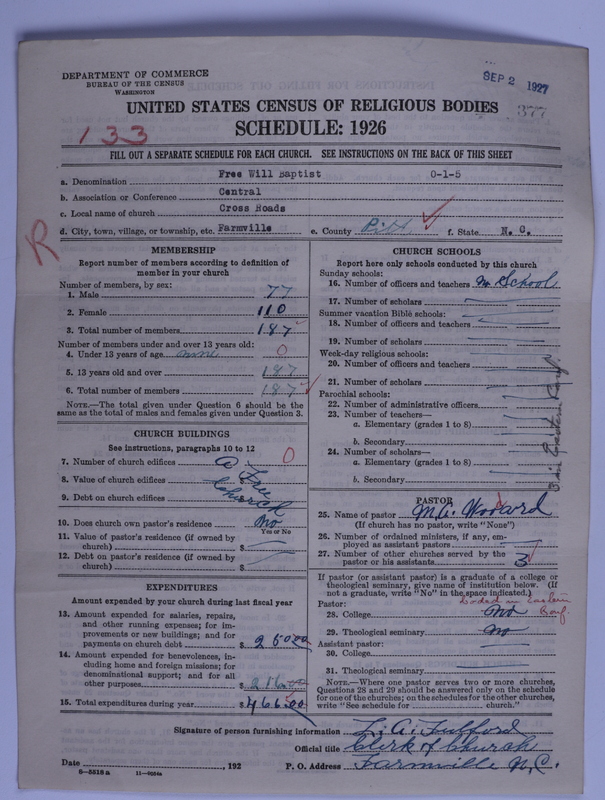 DEPARTMENT OF COMMERCE
BUREAU OF THE CENSUS
WASHINGTON
SEP 2 1927
377
UNITED STATES CENSUS OF RELIGIOUS BODIES
133
SCHEDULE: 1926
FILL OUT A SEPARATE SCHEDULE FOR EACH CHURCH. SEE INSTRUCTIONS ON THE BACK OF THIS SHEET
a. Denomination Free Will Baptist 0-1-5
b. Association or Conference Central
c. Local name of church Cross Roads
d. City, town, village, or township, etc. Farmville e. County Pitt f. State N. C.
R
MEMBERSHIP
Report number of members according to definition of
member in your church
Number of members, by sex:
1. Male 77
2. Female 110
3. Total number of members 187
Number of members under and over 13 years old:
4. Under 13 years of age none 0
5. 13 years old and over 187
6. Total number of members 187
NOTE.—The total given under Question 6 should be the
same as the total of males and females given under Question 3.
CHURCH BUILDINGS
See instructions, paragraphs 10 to 12
7. Number of church edifices 0
8. Value of church edifices A Free
9. Debt on church edifices Church
10. Does church own pastor's residence No
Yes or No
11. Value of pastor's residence (if owned by
church) $
12. Debt on pastor's residence (if owned by
church) $
EXPENDITURES
Amount expended by your church during last fiscal year
13. Amount expended for salaries, repairs,
and other running expenses; for im-
provements or new buildings; and for
payments on church debt $ 250.00
14. Amount expended for benevolences, in-
cluding home and foreign missions; for
denominational support; and for all
other purposes $ 216.00
15. Total expenditures during year $466.00
CHURCH SCHOOLS
Report here only schools conducted by this church
Sunday schools:
16. Number of officers and teachers no School
17. Number of scholars
Summer vacation Bible schools:
18. Number of officers and teachers
19. Number of scholars
Week-day religious schools:
20. Number of officers and teachers
21. Number of scholars
Parochial schools:
22. Number of administrative officers
23. Number of teachers—
a. Elementary (grades 1 to 8)
b. Secondary
24. Number of scholars—
a. Elementary (grades 1 to 8)
b. Secondary
3 in Eastern Conf.
PASTOR
25. Name of pastor M. C. Woodard
(If church has no pastor, write "None")
26. Number of ordained ministers, if any, em-
ployed as assistant pastors
27. Number of other churches served by the
pastor or his assistants 3
If pastor (or assistant pastor) is a graduate of a college or
theological seminary, give name of institution below. (If
not a graduate, write "No" in the space indicated.)
Pastor: Coded in Eastern
28. College No Conf.
29. Theological seminary No
Assistant pastor:
30. College
31. Theological seminary
NOTE.—Where one pastor serves two or more churches,
Questions 28 and 29 should be answered only on the schedule
for one of the churches; on the schedules for the other churches,
write "See schedule for church."
Signature of person furnishing information L. A. Fulford
Official title Clerk of Church
Date , 192 P. O. Address Farmville N.C.
8-5518a